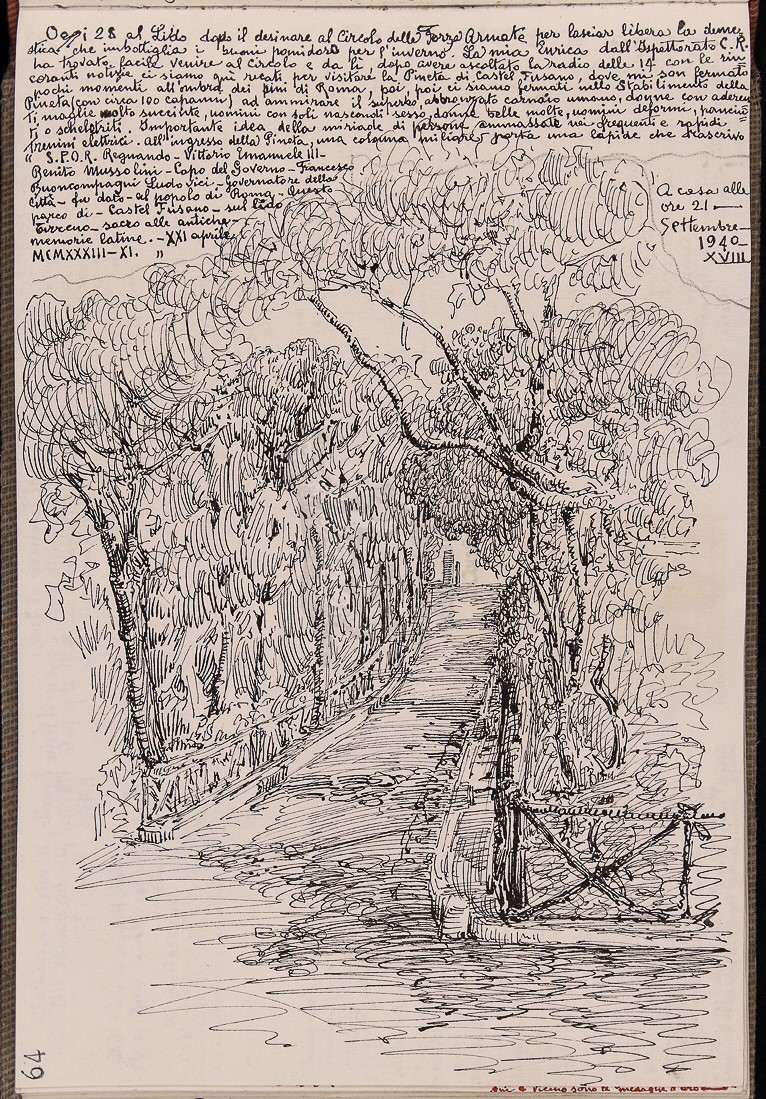 Oggi 28 al Lido dopo il desinare al Circolo delle Forze Armate per lasciar libera la dome=
stica che imbottiglia i buoni pomidoro per l'inverno. La mia Enrica dall'Ispettorato C.R.
ha trovato facile venire al Circolo e da lì dopo avere ascoltato la radio delle 14 con le rin=
coranti notizie ci siamo qui recati per visitare la Pineta di Castel Fusano, dove mi son fermato
pochi momenti all'ombra dei pini di Roma, poi, poi ci siamo fermati nello Stabilimento della
Pineta (con circa 100 capanni) ad ammirare il superbo, abbronzato carnaio umano, donne con aderen=
ti, maglie molto succinte, uomini con soli nascondi sesso, donne belle molte, uomini deformi, panciu=
ti o scheletriti. Importante idea della miriade di persone ammassate nei frequenti e rapidi
trenini elettrici. All'ingresso della Pineta, una colonna miliare porta una lapide che trascrivo
" S.P.Q.R. Regnando - Vittorio Emanuele III -
Benito Mussolini - Capo del Governo - Francesco
Buoncompagni Ludovici - Governatore della
Città - fu dato - al popolo di Roma - Questo
parco di - Castel Fusano - sul lido
Tirreno - sacro alle antiche -
memorie latine. - XXI aprile
MCMXXXIII - XI. "
A casa alle
ore 21 -
Settembre -
1940
XVIII
64
sono le medaglie d'oro